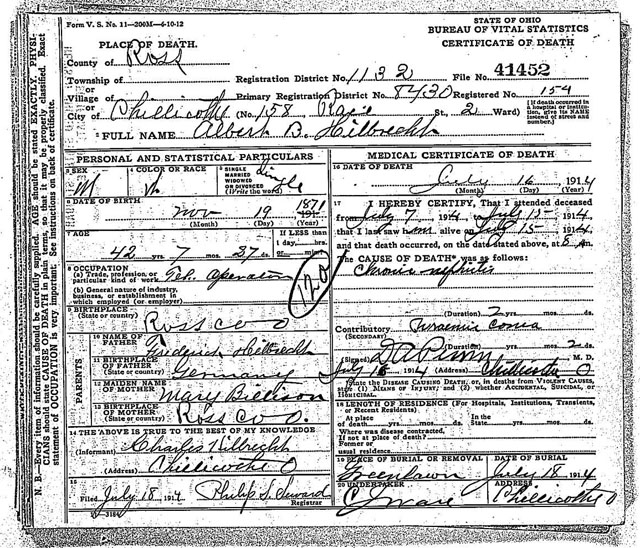 Form V. S. No. 11—200M—4-10-12
PLACE OF DEATH.
County of Ross
Township of
or
Village of
or
City of Chillicothe (No. 158
St., 2 Ward)
STATE OF OHIO
BUREAU OF VITAL STATISTICS
CERTIFICATE OF DEATH
Registration District No. 1132 File No. 41452
Primary Registration District No. 8430 Registered No. 154
[If death occurred in a hospital or institution, give its NAME instead of street and number.]
2 FULL NAME Albert B. Hilbrecht
PERSONAL AND STATISTICAL PARTICULARS
3 SEX
M
4 COLOR OR RACE
W
5 SINGLE MARRIED WIDOWED OR DIVORCED (Write the word) Single
6 DATE OF BIRTH
Nov 19 1871
(Month) (Day) (Year)
7 AGE
42 yrs. 7 mos. 27 ds.
If LESS than
1 day, hrs.
or min.
8 OCCUPATION
(a) Trade, profession, or particular kind of work Tel. Operator
(b) General nature of industry, business, or establishment in which employed (or employer)
120
9 BIRTHPLACE
(State or country)
Ross Co O
PARENTS
10 NAME OF FATHER
Fredrick Hilbrecht
11 BIRTHPLACE OF FATHER
(State or country)
Germany
12 MAIDEN NAME OF MOTHER
Mary
13 BIRTHPLACE OF MOTHER
(State or country)
Ross Co O
14 THE ABOVE IS TRUE TO THE BEST OF MY KNOWLEDGE
(Informant) Charles Hilbrecht
(Address) Chillicothe O
15
Filed July 18 1914 Philip S. Seward
Registrar
MEDICAL CERTIFICATE OF DEATH
16 DATE OF DEATH
July 16, 1914
(Month) (Day) (Year)
17 I HEREBY CERTIFY, That I attended deceased
from July 7 1914, to July 15 1914
that I last saw him alive on July 15 1914
and that death occurred, on the date stated above, at 5 m.
The CAUSE OF DEATH was as follows:
Chronic nephritis
(Duration) 2 yrs. mos. ds.
Contributory Uraemic Coma
(SECONDARY)
(Duration) yrs. mos. 2 ds.
(Signed) M. D.
July 16 1914 (Address) Chillicothe O
State the DISEASE CAUSING DEATH, or, in deaths from VIOLENT CAUSES, state (1) MEANS OF INJURY; and (2) whether ACCIDENTAL, SUICIDAL, or HOMICIDAL.
18 LENGTH OF RESIDENCE (For Hospitals, Institutions, Transients, or Recent Residents)
At place of death yrs. mos. ds. In the State yrs. mos. ds.
Where was disease contracted,
If not at place of death?
Former or
usual residence
19 PLACE OF BURIAL OR REMOVAL DATE OF BURIAL
Greenlawn July 18 1914
20 UNDERTAKER ADDRESS
C Ware Chillicothe O
N. B.—Every item of information should be carefully supplied. AGE should be stated EXACTLY. PHYSICIANS should state CAUSE OF DEATH in plain terms, so that it may be properly classified. Exact statement of OCCUPATION is very important. See instructions on back of certificate.